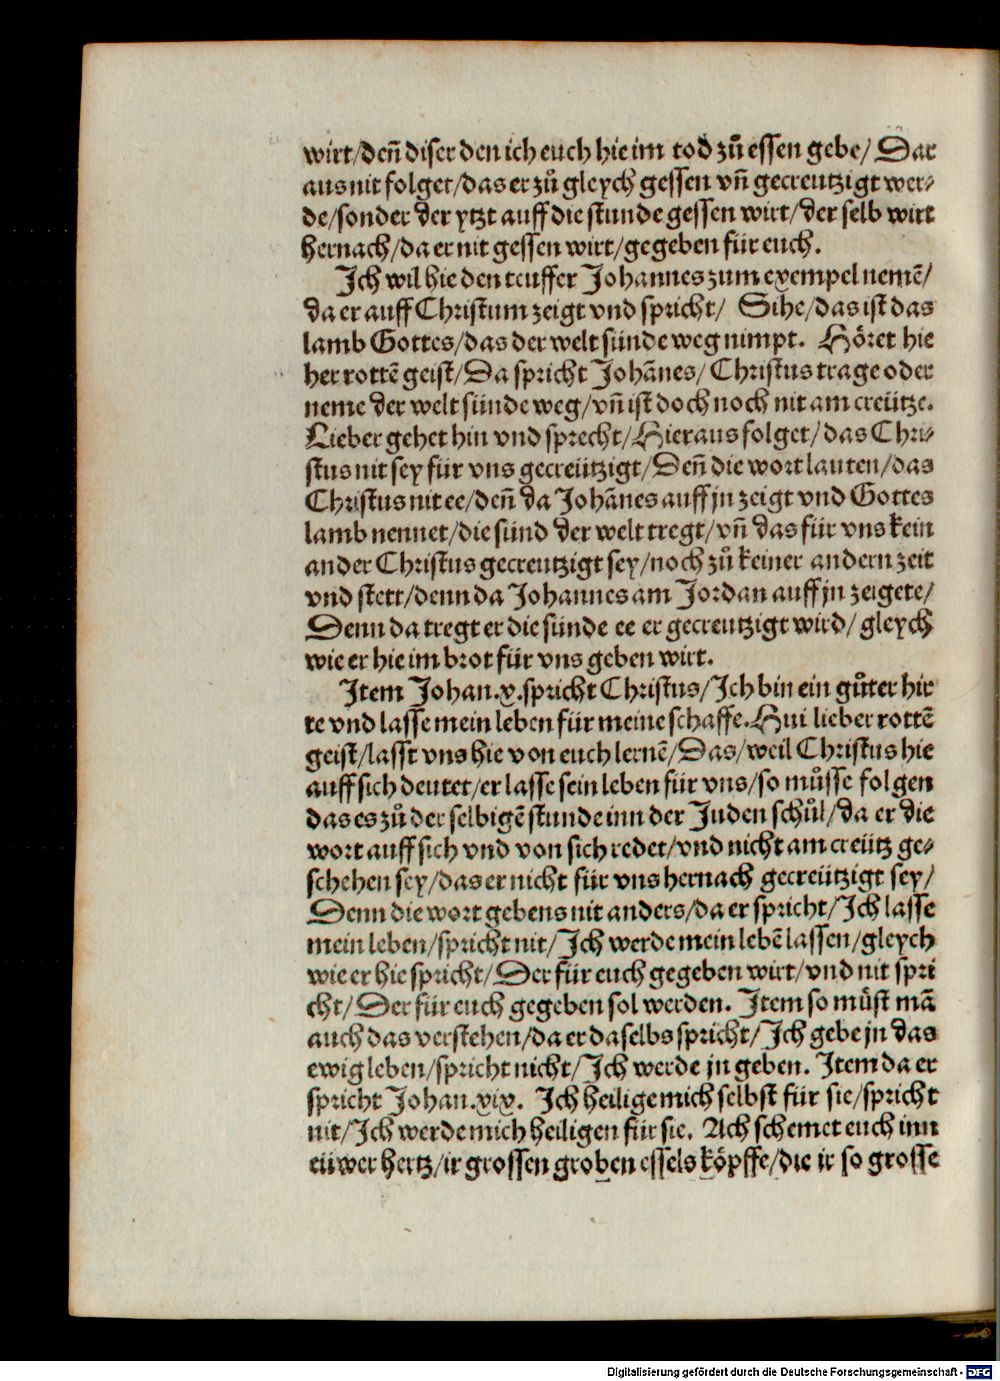 wirt/deñ diser den ich euch hie im tod zů essen gebe/ Dar
aus nit folget/das er zů gleych gessen vñ gecreutzigt wer-
de/sonder der ytzt auff die stunde gessen wirt/der selb wirt
hernach/da er nit gessen wirt/gegeben für euch.
Ich wil hie den teuffer Johannes zum exempel nemē/
da er auff Christum zeigt vnd spricht/ Sihe/das ist das
lamb Gottes/das der welt sünde weg nimpt. Höret hie
her rottē geist/Da spricht Johānes/ Christus trage oder
neme der welt sünde weg/vñ ist doch noch nit am creütze.
Lieber gehet hin vnd sprecht/Hieraus folget/das Chri-
stus nit sey für vns gecreützigt/Deñ die wort lauten/das
Christus nit ee/deñ da Johānes auff jn zeigt vnd Gottes
lamb nennet/die sünd der welt tregt/vñ das für vns kein
ander Christus gecreutzigt sey/noch zů keiner andern zeit
vnd stett/denn da Johannes am Jordan auff jn zeigete/
Denn da tregt er die sünde ee er gecreutzigt wird/ gleych
wie er hie im brot für vns geben wirt.
Item Johan.x.spricht Christus/Ich bin ein gůter hir
te vnd lasse mein leben für meine schaffe.Hui lieber rottē
geist/lasst vns hie von euch lernē/Das/weil Christus hie
auff sich deutet/er lasse sein leben für vns/so můsse folgen
das es zů der selbigē stunde inn der Juden schůl/da er die
wort auff sich vnd von sich redet/vnd nicht am creütz ge-
schehen sey/das er nicht für vns hernach gecreützigt sey/
Denn die wort gebens nit anders/da er spricht/Ich lasse
mein leben/spricht nit/Ich werde mein lebē lassen/gleych
wie er hie spricht/Der für euch gegeben wirt/vnd nit spri
cht/Der für euch gegeben sol werden. Item so můst mā
auch das verstehen/da er daselbs spricht/Ich gebe jn das
ewig leben/spricht nicht/Ich werde jn geben. Item da er
spricht Johan.xix. Ich heilige mich selbst für sie/spricht
nit/Ich werde mich heiligen für sie. Ach schemet euch inn
eüwer hertz/ir grossen groben essels köpffe/die ir so grosse
Digitalisierung gefördert durch die Deutsche Forschungsgemeinschaft - DFG